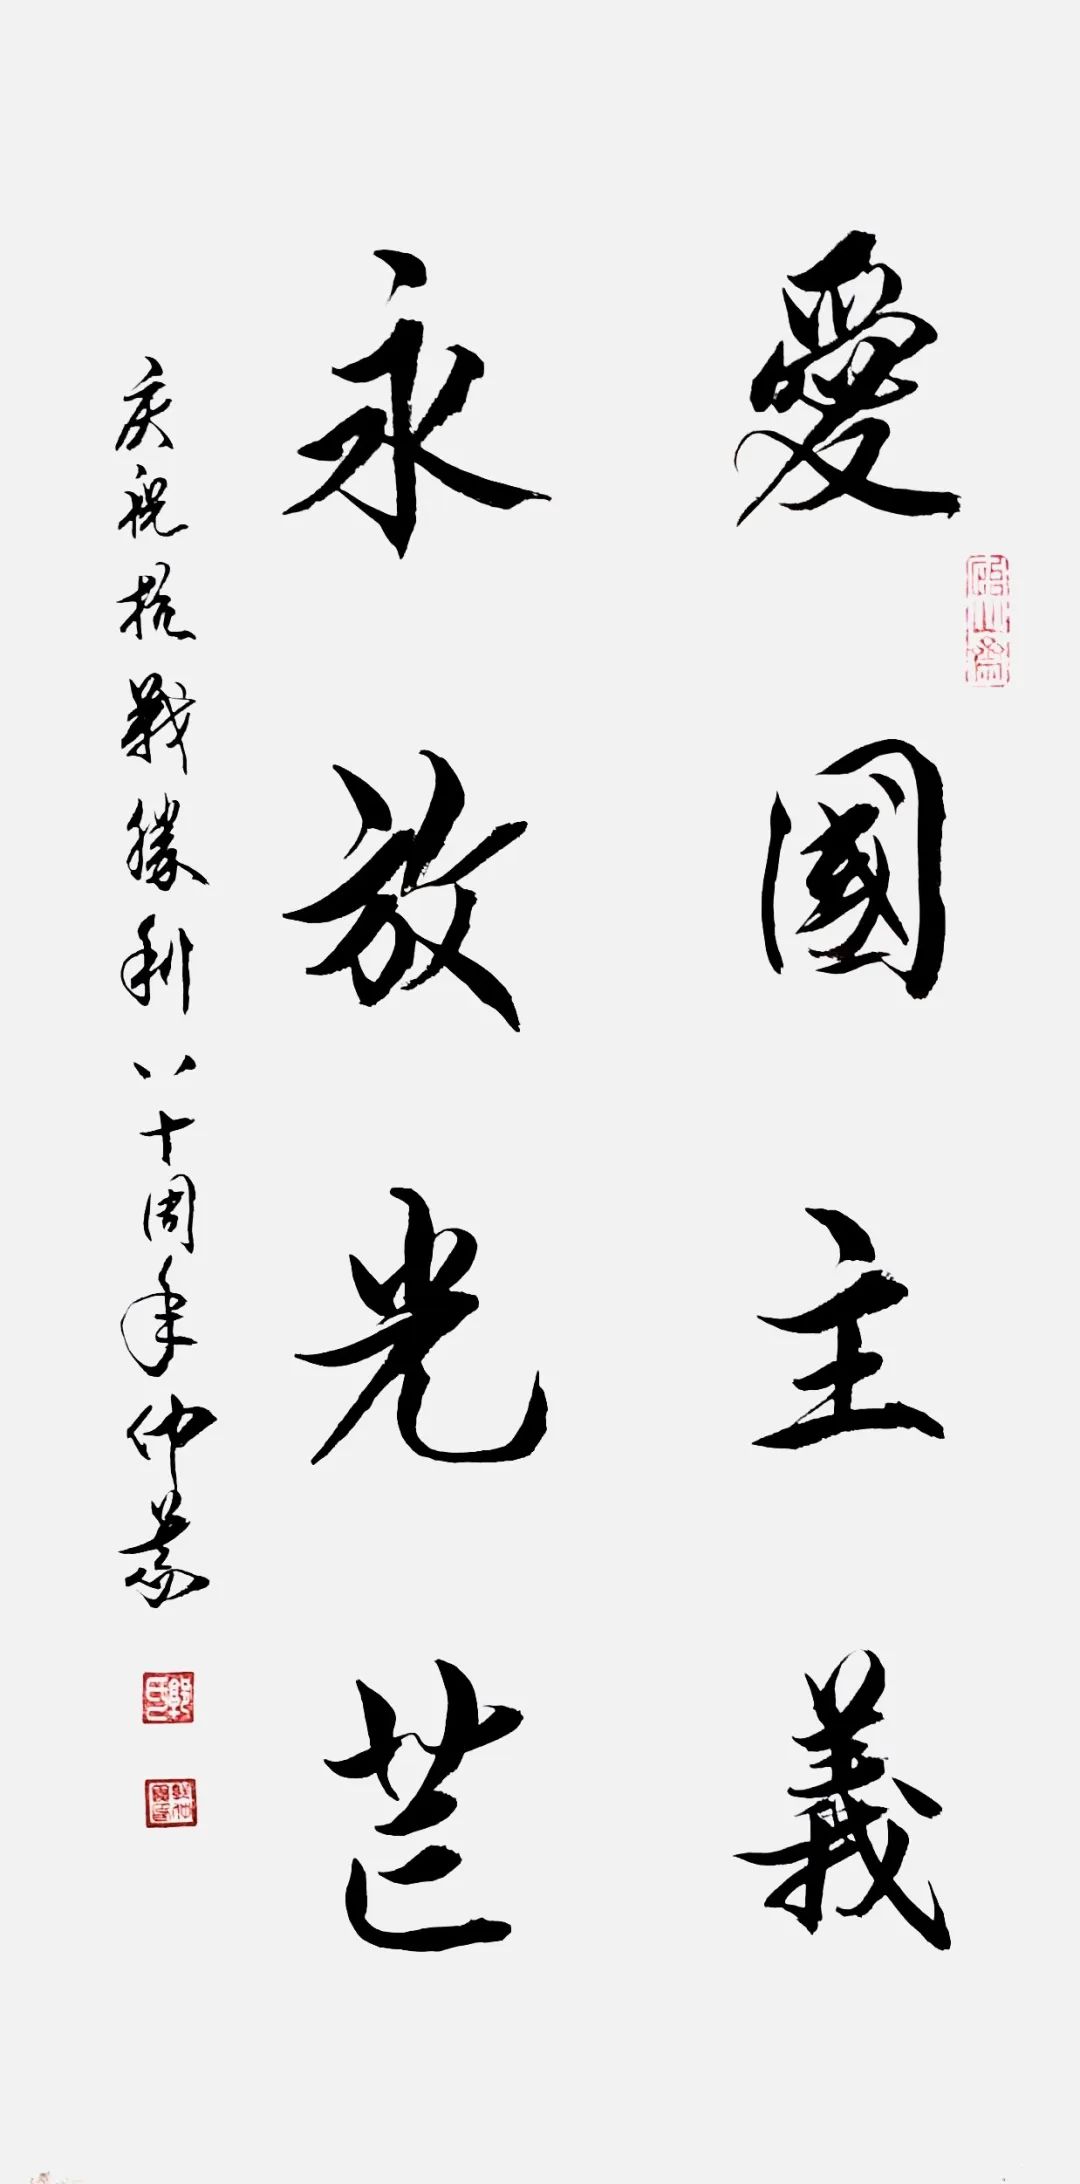 愛國主義
永放光芒
庆祝抗戰勝利八十周年仲恭